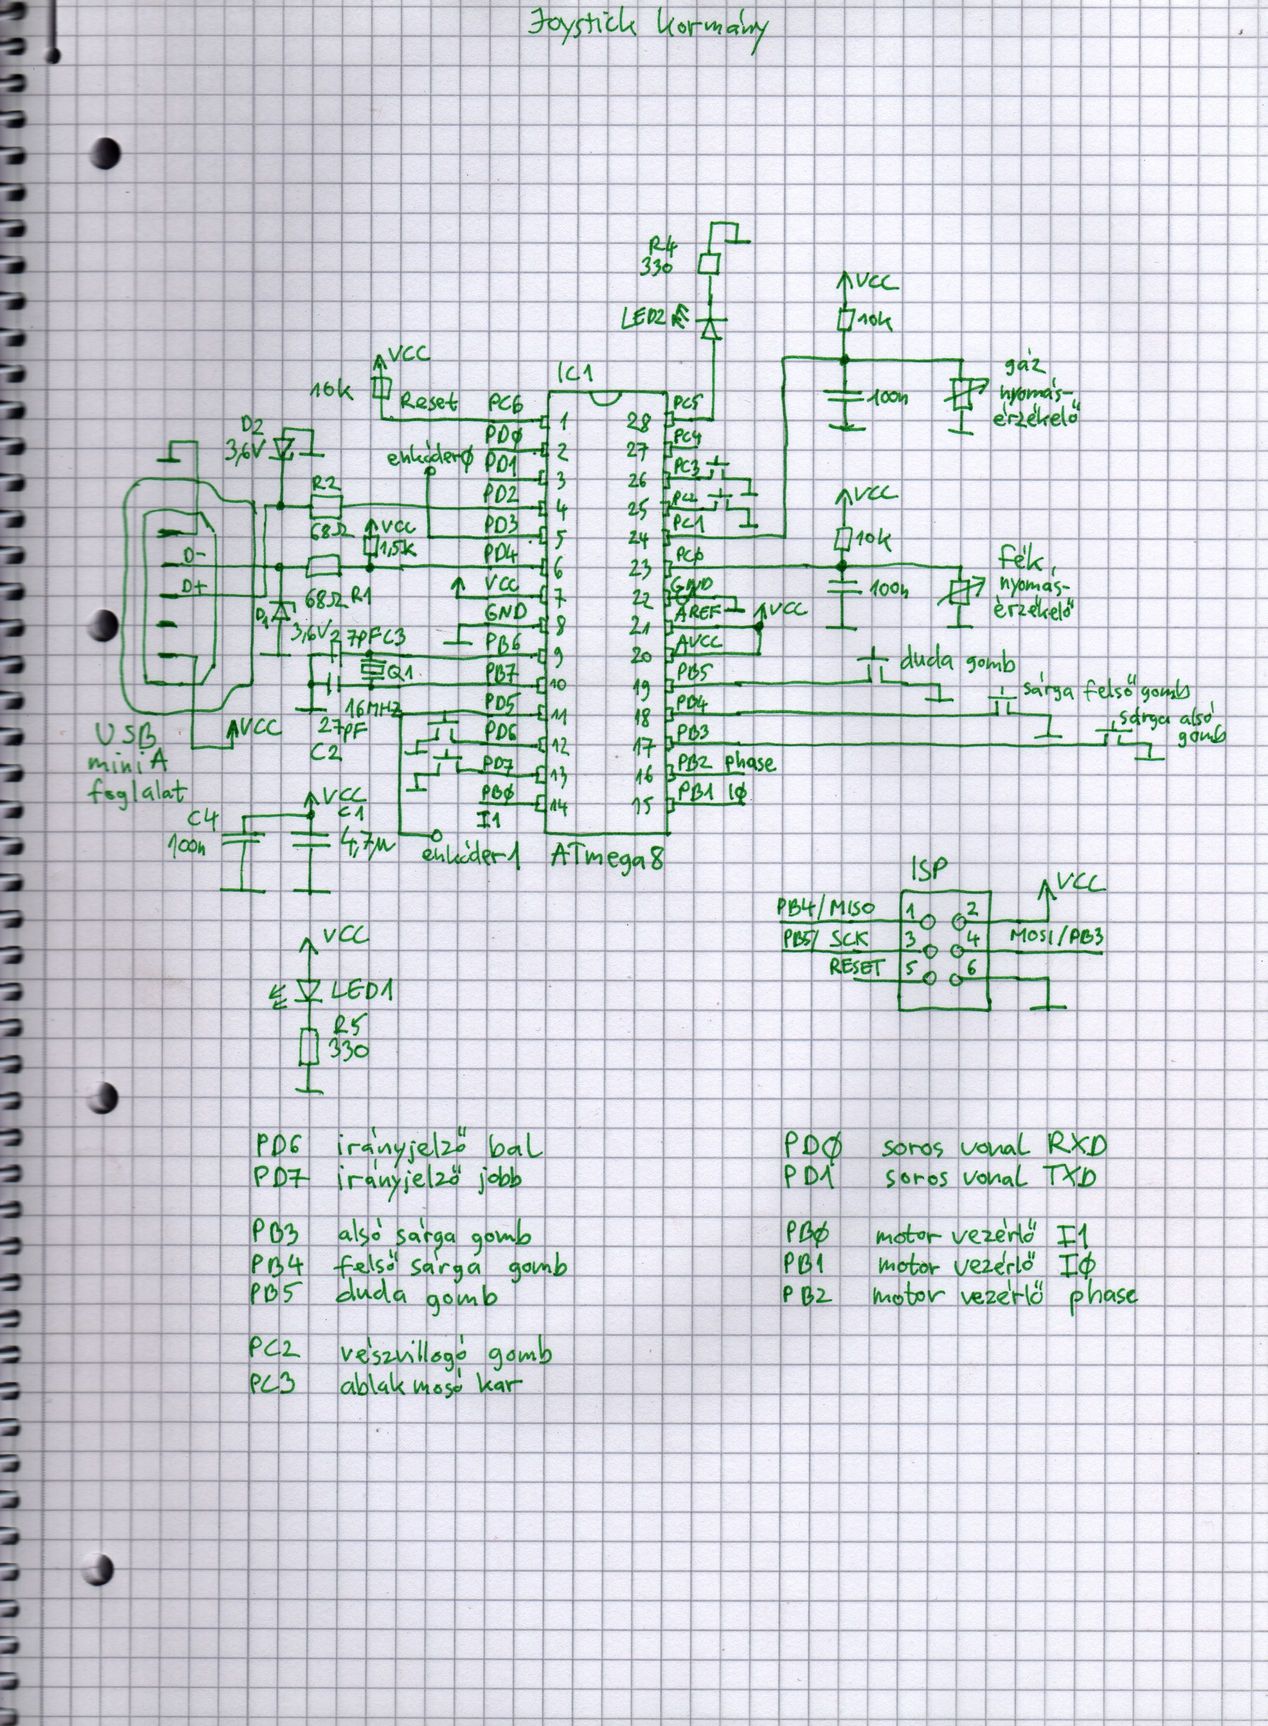 Joystick kormány
R4
330
LED2
VCC
10k
gáz
nyomás-
érzékelő
100n
VCC
Reset
IC1
D2
3,6V
enkóder0
R2
68Ω
VCC
1,5k
D-
D+
68Ω R1
D1
3,6V
27PF C3
Q1
16MHz
27PF
C2
VCC
USB
mini A
foglalat
PC6 1
PD0 2
PD1 3
PD2 4
PD3 5
PD4 6
VCC 7
GND 8
PB6 9
PB7 10
PD5 11
PD6 12
PD7 13
PB0 14
I1
28 PC5
27 PC4
26 PC3
25 PC2
24 PC1
23 PC0
22 GND
21 AREF
20 AVCC
19 PB5
18 PB4
17 PB3
16 PB2 phase
15 PB1 I0
VCC
10k
100n
fék
nyomás-
érzékelő
VCC
duda gomb
sárga felső gomb
sárga alsó
gomb
C4
100n
VCC
C1
4,7µ
enkóder1
ATmega8
ISP
PB4/MISO 1 2 VCC
PB5/SCK 3 4 MOSI/PB3
RESET 5 6
VCC
LED1
R5
330
PD6 irányjelző bal
PD7 irányjelző jobb
PB3 alsó sárga gomb
PB4 felső sárga gomb
PB5 duda gomb
PC2 vészvillogó gomb
PC3 ablakmosó kar
PD0 soros vonal RXD
PD1 soros vonal TXD
PB0 motor vezérlő I1
PB1 motor vezérlő I0
PB2 motor vezérlő phase